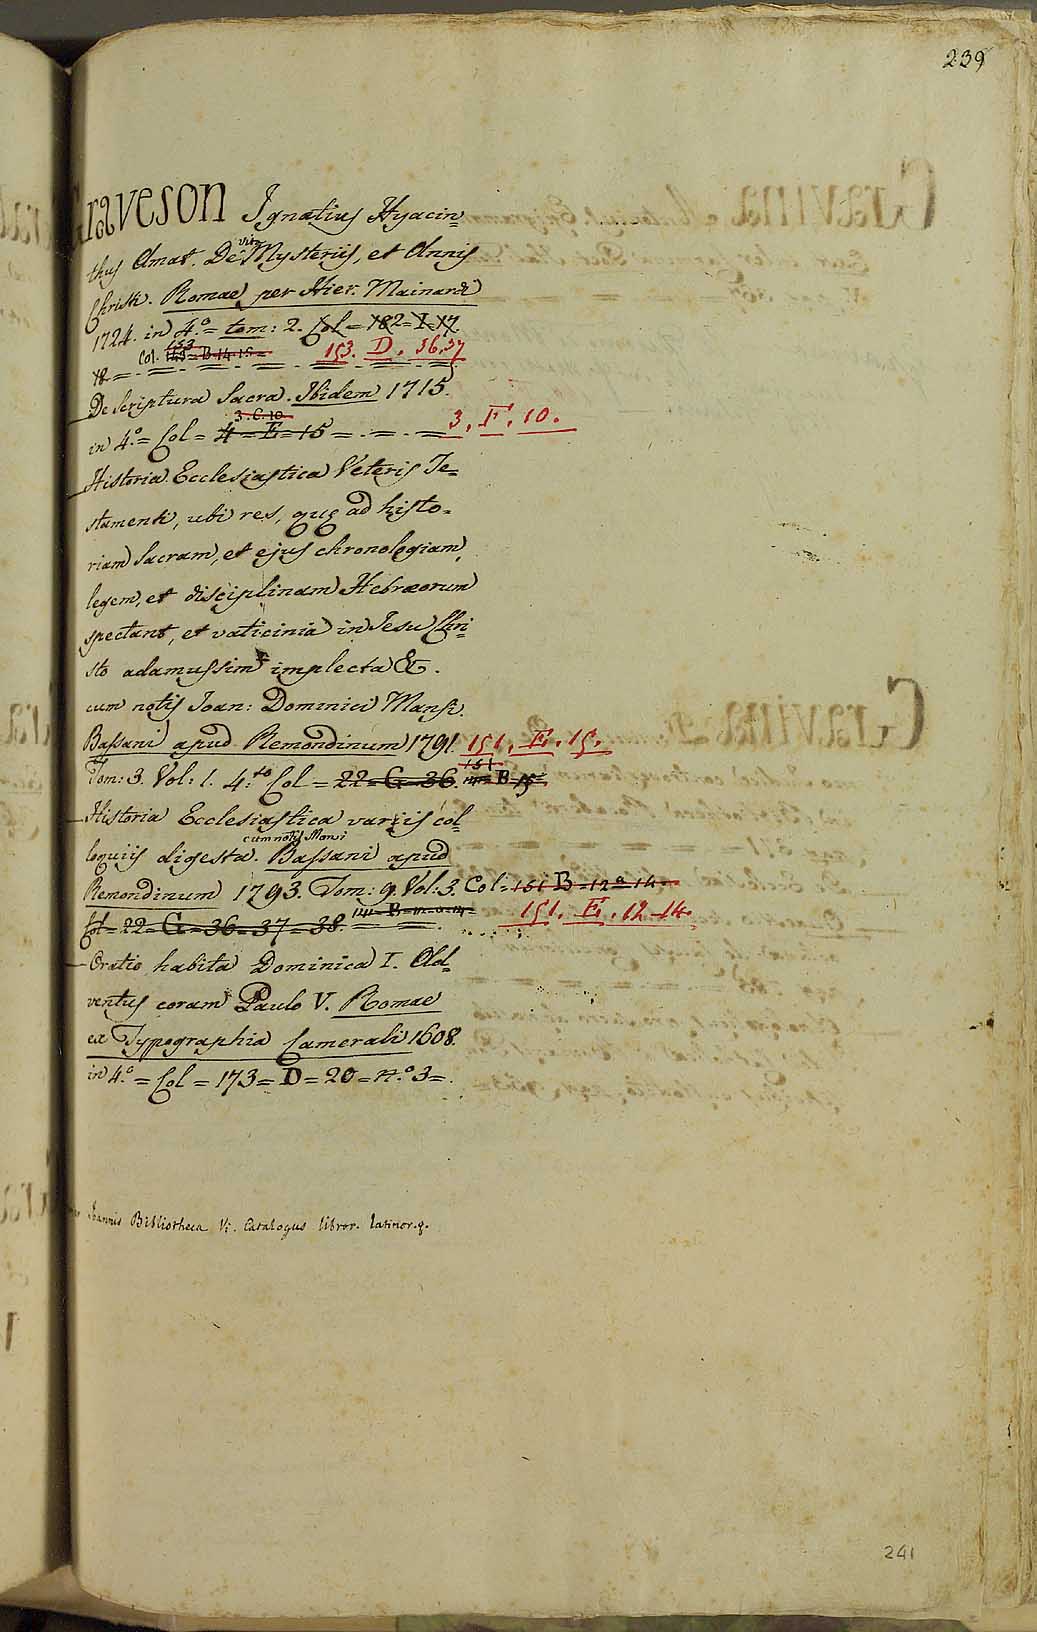 239
Graveson Ignatius Hyacin=
thus Amat. De vita Mysteriis, et Annis
Christi. Romae per Hier. Mainardi
1724. in 4.º = tom: 2. Col = 182 = I. 17.
18 = Col. 153 = B. 14. 15 = 153. D. 36.37
De Scriptura Sacra. Ibidem 1715.
3. C. 10
in 4.º = Col = 4 = E = 15 = 3. F. 10.
Historia Ecclesiastica Veteris Te=
stamenti, ubi res, quę ad histo=
riam Sacram, et ejus chronologiam,
legem, et disciplinam Hebræorum
spectant, et vaticinia in Jesu Chri=
sto adamussim implecta &.
cum notis Joan: Dominici Mansi.
Bassani apud Remondinum 1791. 151. E. 15.
Tom: 3. Vol: 1. 4.to Col = 22 = G = 36. 151 B 15
Historia Ecclesiastica variis col=
cum notis Mansi
loquiis digesta. Bassani apud
Remondinum 1793. Tom: 9. Vol: 3. Col = 151 B = 12 a 14 =
Col = 22 = G = 36 = 37 = 38. 151. E. 12-14.
Oratio habita Dominica I. Ad=
ventus coram Paulo V. Romae
ex Typographia Camerali 1608.
in 4.º = Col = 173 = D = 20 = n.º 3 =
Joannis Bibliotheca Vi. Catalogus libror. latinor. 9.
241